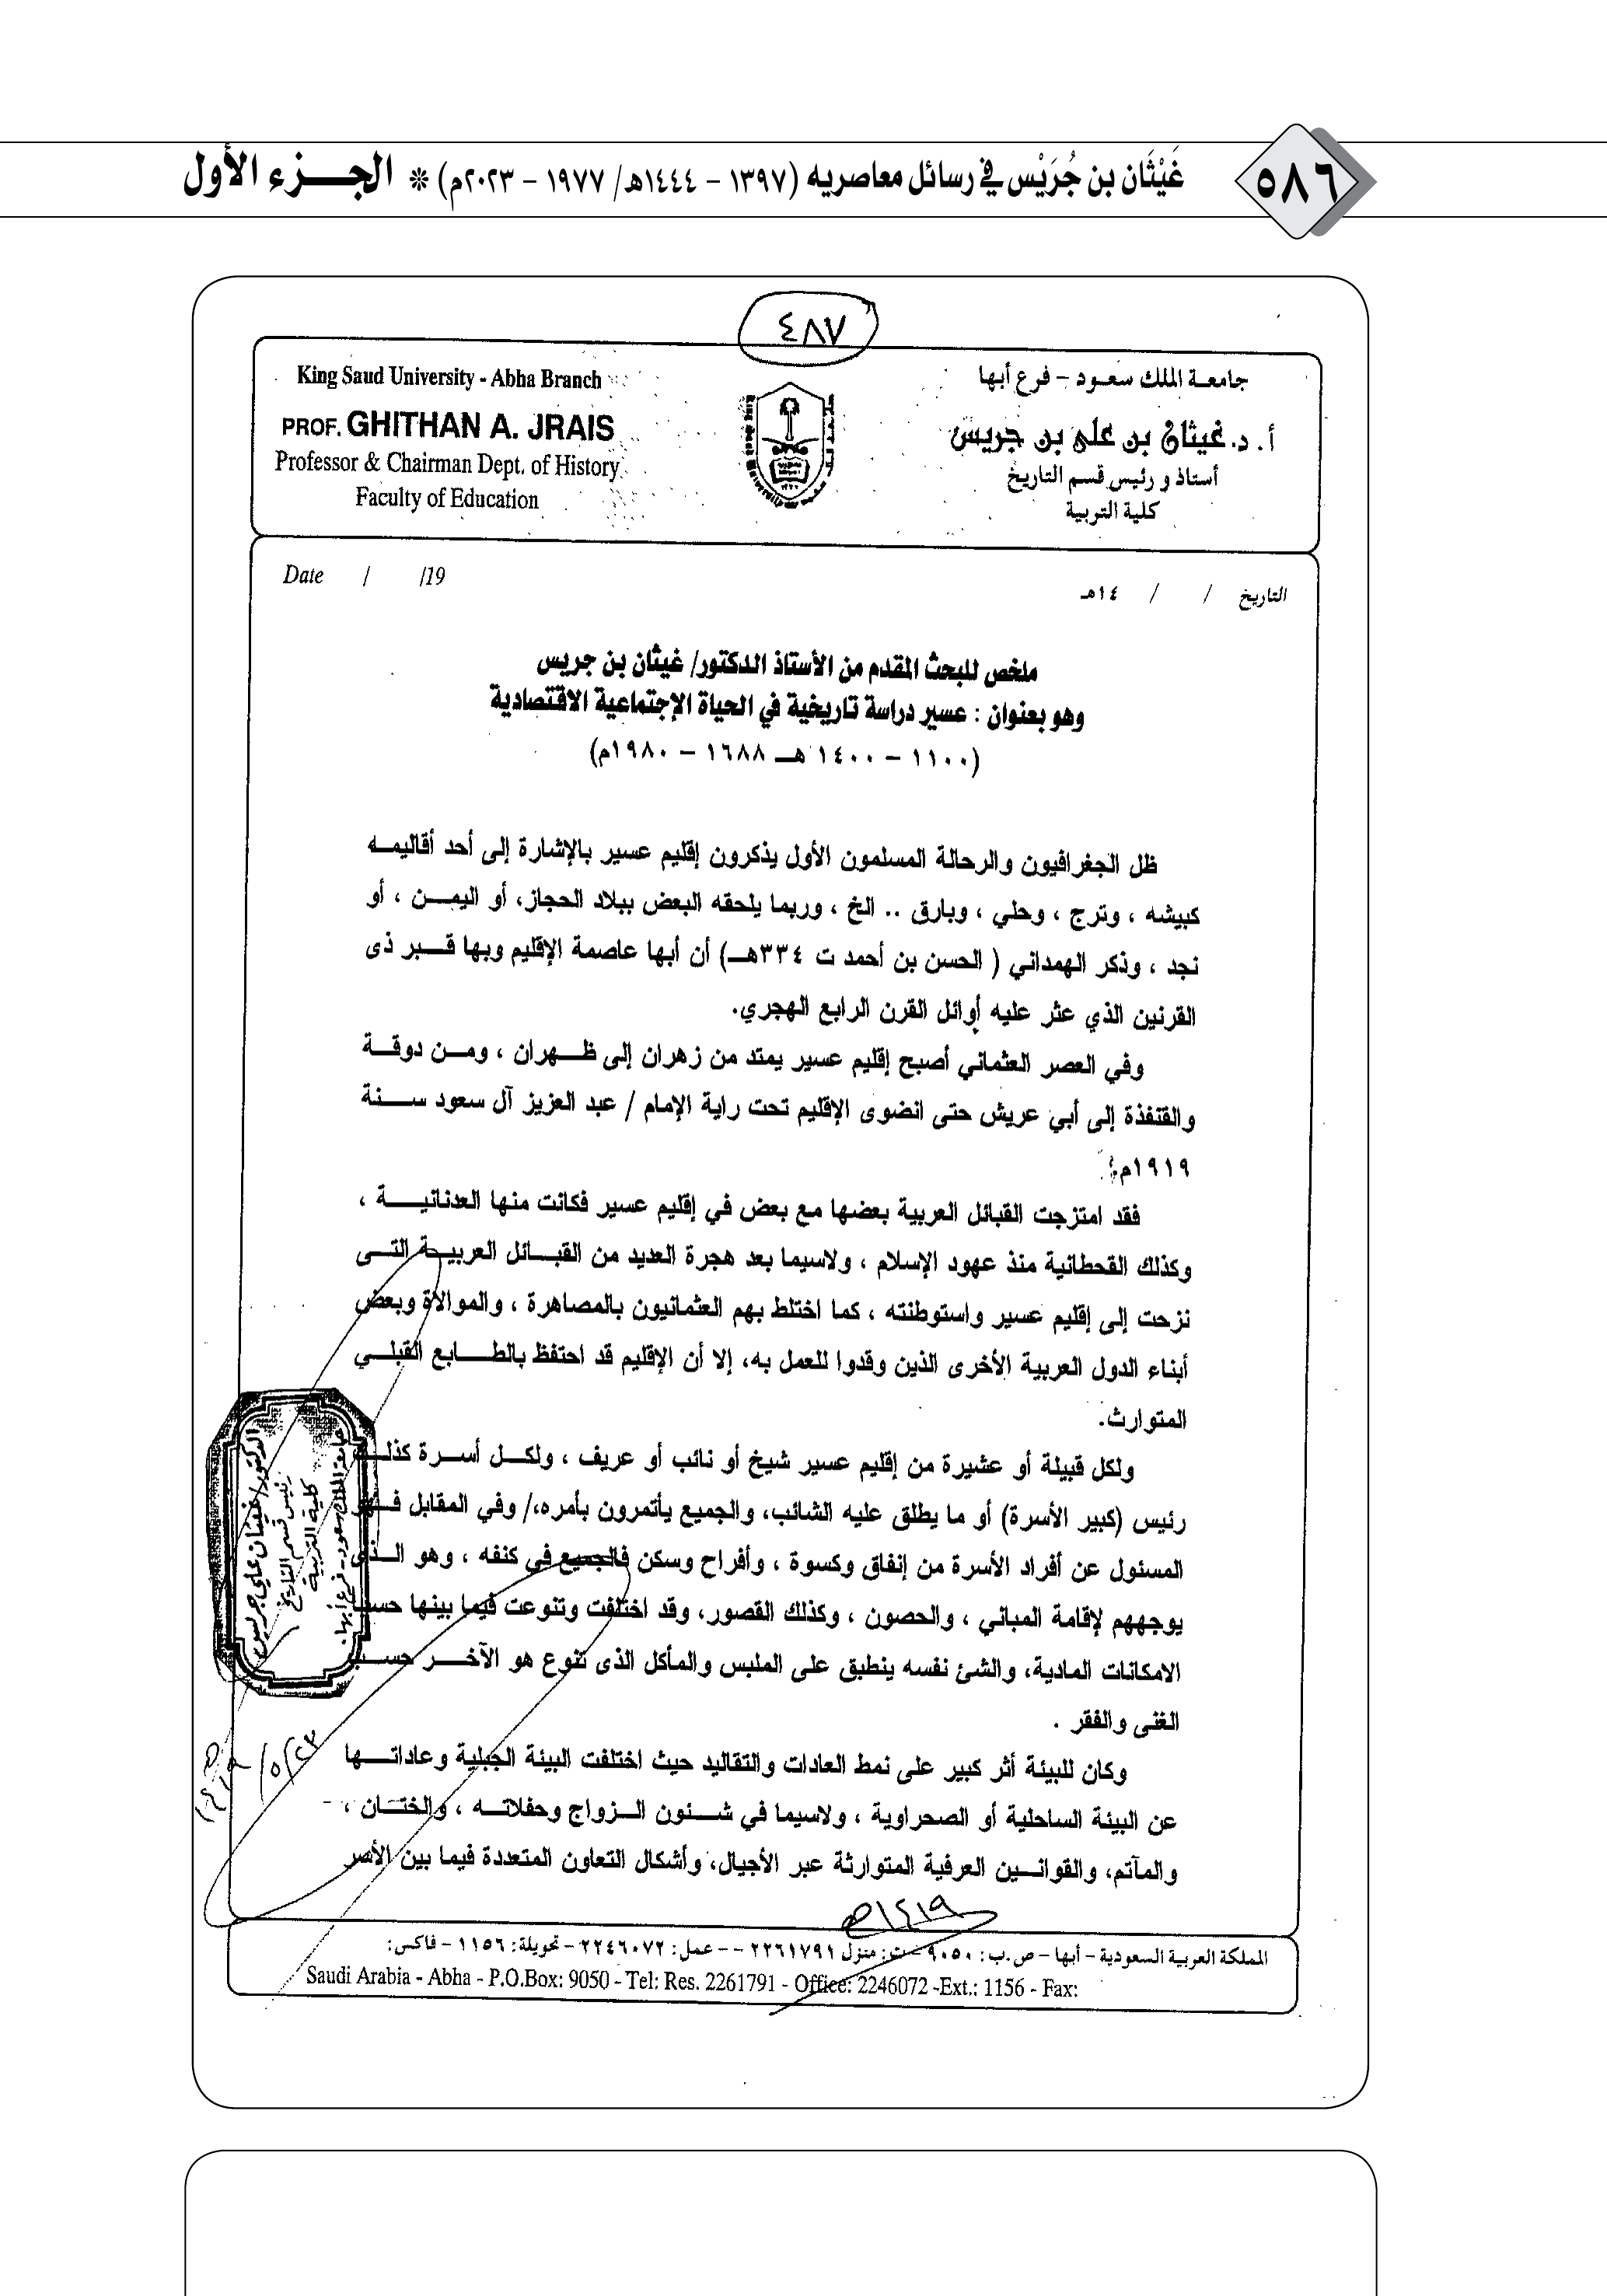 ٥٨٦
غَيْثَان بن جُرَيْس في رسائل معاصريه (١٣٩٧ - ١٤٤٤هـ/ ١٩٧٧ - ٢٠٢٣م) * الجــزء الأول
٤٨٧
جامعة الملك سعود - فرع أبها
أ. د. غيثان بن على بن جريس
أستاذ و رئيس قسم التاريخ
كلية التربية
King Saud University - Abha Branch
PROF. GHITHAN A. JRAIS
Professor & Chairman Dept. of History
Faculty of Education
التاريخ / / ١٤هـ
Date / /19
ملخص للبحث المقدم من الأستاذ الدكتور/ غيثان بن جريس
وهو بعنوان : عسير دراسة تاريخية في الحياة الإجتماعية الاقتصادية
(١١٠٠ - ١٤٠٠ هـ ١٦٨٨ - ١٩٨٠م)
ظل الجغرافيون والرحالة المسلمون الأول يذكرون إقليم عسير بالإشارة إلى أحد أقاليمه
كبيشه ، وترج ، وحلي ، وبارق .. الخ ، وربما يلحقه البعض ببلاد الحجاز، أو اليمن ، أو
نجد ، وذكر الهمداني ( الحسن بن أحمد ت ٣٣٤هـ) أن أبها عاصمة الإقليم وبها قبر ذى
القرنين الذي عثر عليه أوائل القرن الرابع الهجري.
وفي العصر العثماني أصبح إقليم عسير يمتد من زهران إلى ظهران ، ومن دوقة
والقنفذة إلى أبي عريش حتى انضوى الإقليم تحت راية الإمام / عبد العزيز آل سعود سنة
١٩١٩م.
فقد امتزجت القبائل العربية بعضها مع بعض في إقليم عسير فكانت منها العدنانية ،
وكذلك القحطانية منذ عهود الإسلام ، ولاسيما بعد هجرة العديد من القبائل العربية التى
نزحت إلى إقليم عسير واستوطنته ، كما اختلط بهم العثمانيون بالمصاهرة ، والموالاة وبعض
أبناء الدول العربية الأخرى الذين وفدوا للعمل به، إلا أن الإقليم قد احتفظ بالطابع القبلي
المتوارث.
ولكل قبيلة أو عشيرة من إقليم عسير شيخ أو نائب أو عريف ، ولكل أسرة كذلك
رئيس (كبير الأسرة) أو ما يطلق عليه الشائب، والجميع يأتمرون بأمره،/ وفي المقابل فهو
المسئول عن أفراد الأسرة من إنفاق وكسوة ، وأفراح وسكن فالجميع في كنفه ، وهو الذى
يوجههم لإقامة المباني ، والحصون ، وكذلك القصور، وقد اختلفت وتنوعت فيما بينها حسب
الامكانات المادية، والشئ نفسه ينطبق على الملبس والمأكل الذى تنوع هو الآخر حسب
الغنى والفقر .
وكان للبيئة أثر كبير على نمط العادات والتقاليد حيث اختلفت البيئة الجبلية وعاداتها
عن البيئة الساحلية أو الصحراوية ، ولاسيما في شئون الزواج وحفلاته ، والختان ،
والمآتم، والقوانين العرفية المتوارثة عبر الأجيال، وأشكال التعاون المتعددة فيما بين الأسر
جامعة الملك سعود - فرع أبها.
كلية التربية
رئيس قسم التاريخ
الدكتور/ غيثان علي جريس
١٤١٩/٥/٢٣هـ
١٤١٩هـ
المملكة العربية السعودية - أبها - ص.ب: ٩٠٥٠ - ت: منزل ٢٢٦١٧٩١ - - عمل: ٢٢٤٦٠٧٢ - تحويلة: ١١٥٦ - فاكس:
Saudi Arabia - Abha - P.O.Box: 9050 - Tel: Res. 2261791 - Office: 2246072 -Ext.: 1156 - Fax: